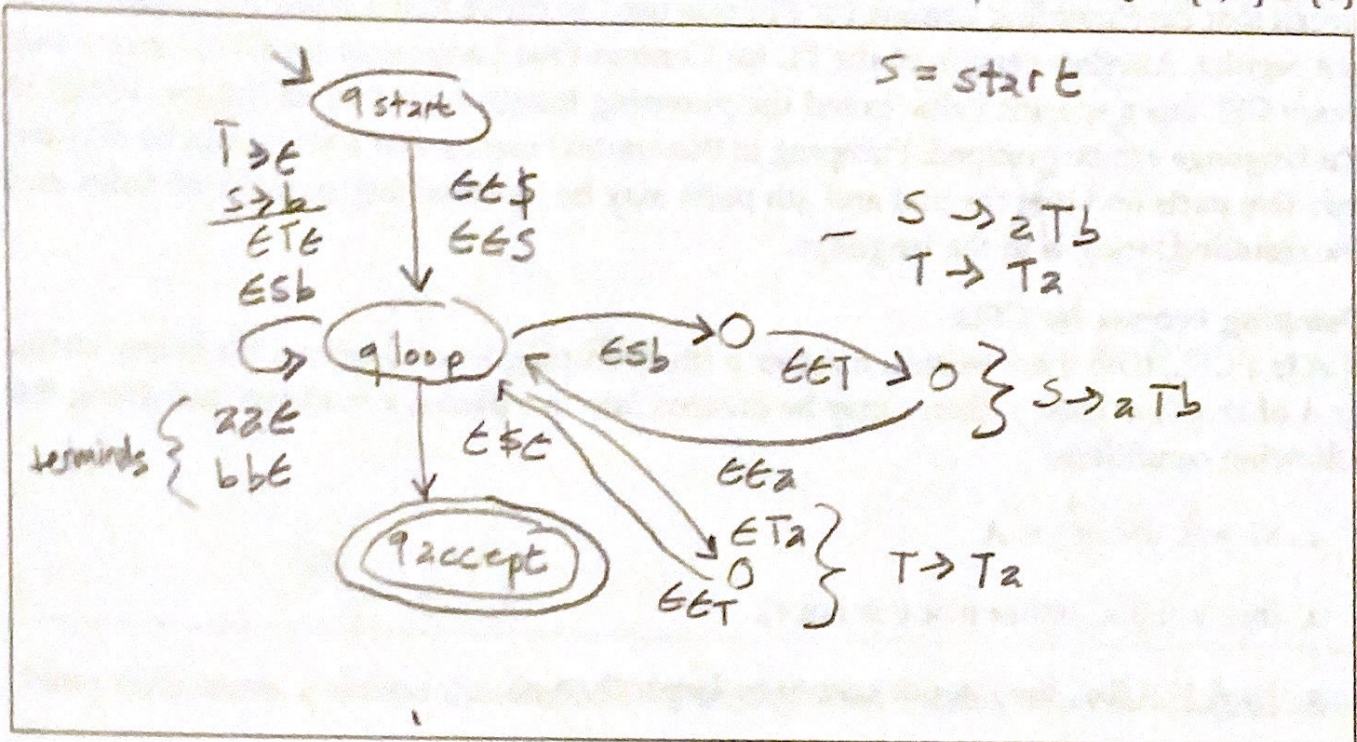 q start
S = start
T → ϵ
S → b
ϵTϵ
ϵSb
ϵϵ$
ϵϵS
S → aTb
T → Ta
q loop
ϵSb
ϵϵT
S → aTb
terminals
aaϵ
bbϵ
ϵ$ϵ
ϵϵa
q accept
ϵTa
ϵϵT
T → Ta